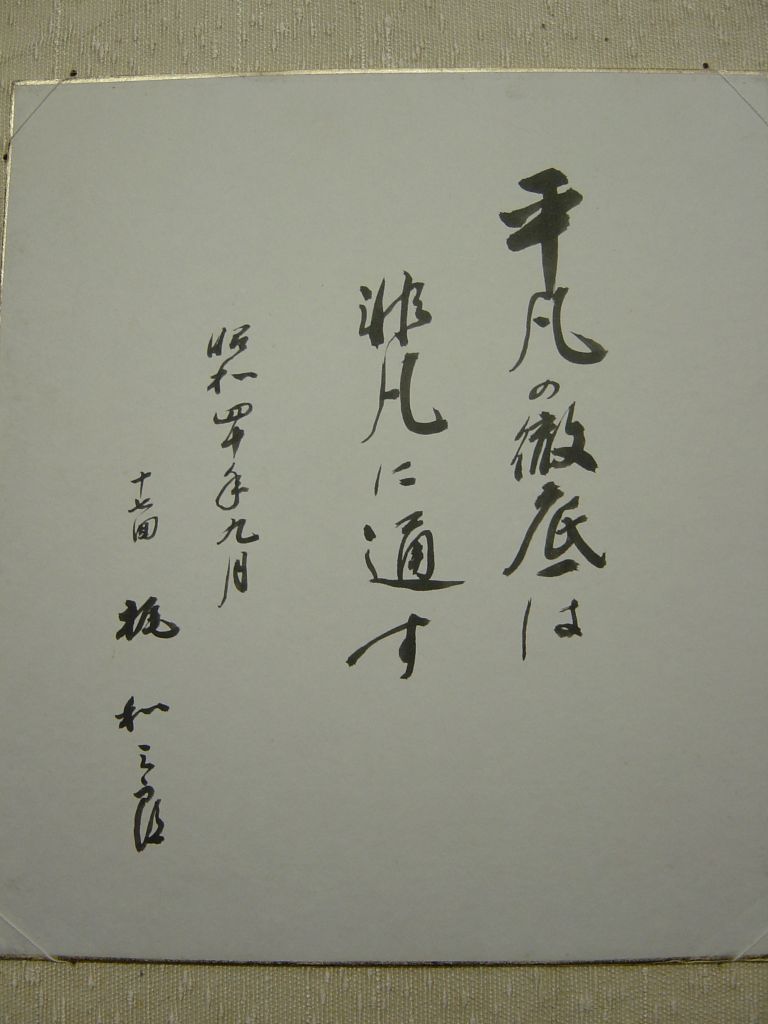 平凡の徹底は
非凡に通す
昭和四十年九月
十七回 梶 和三郎